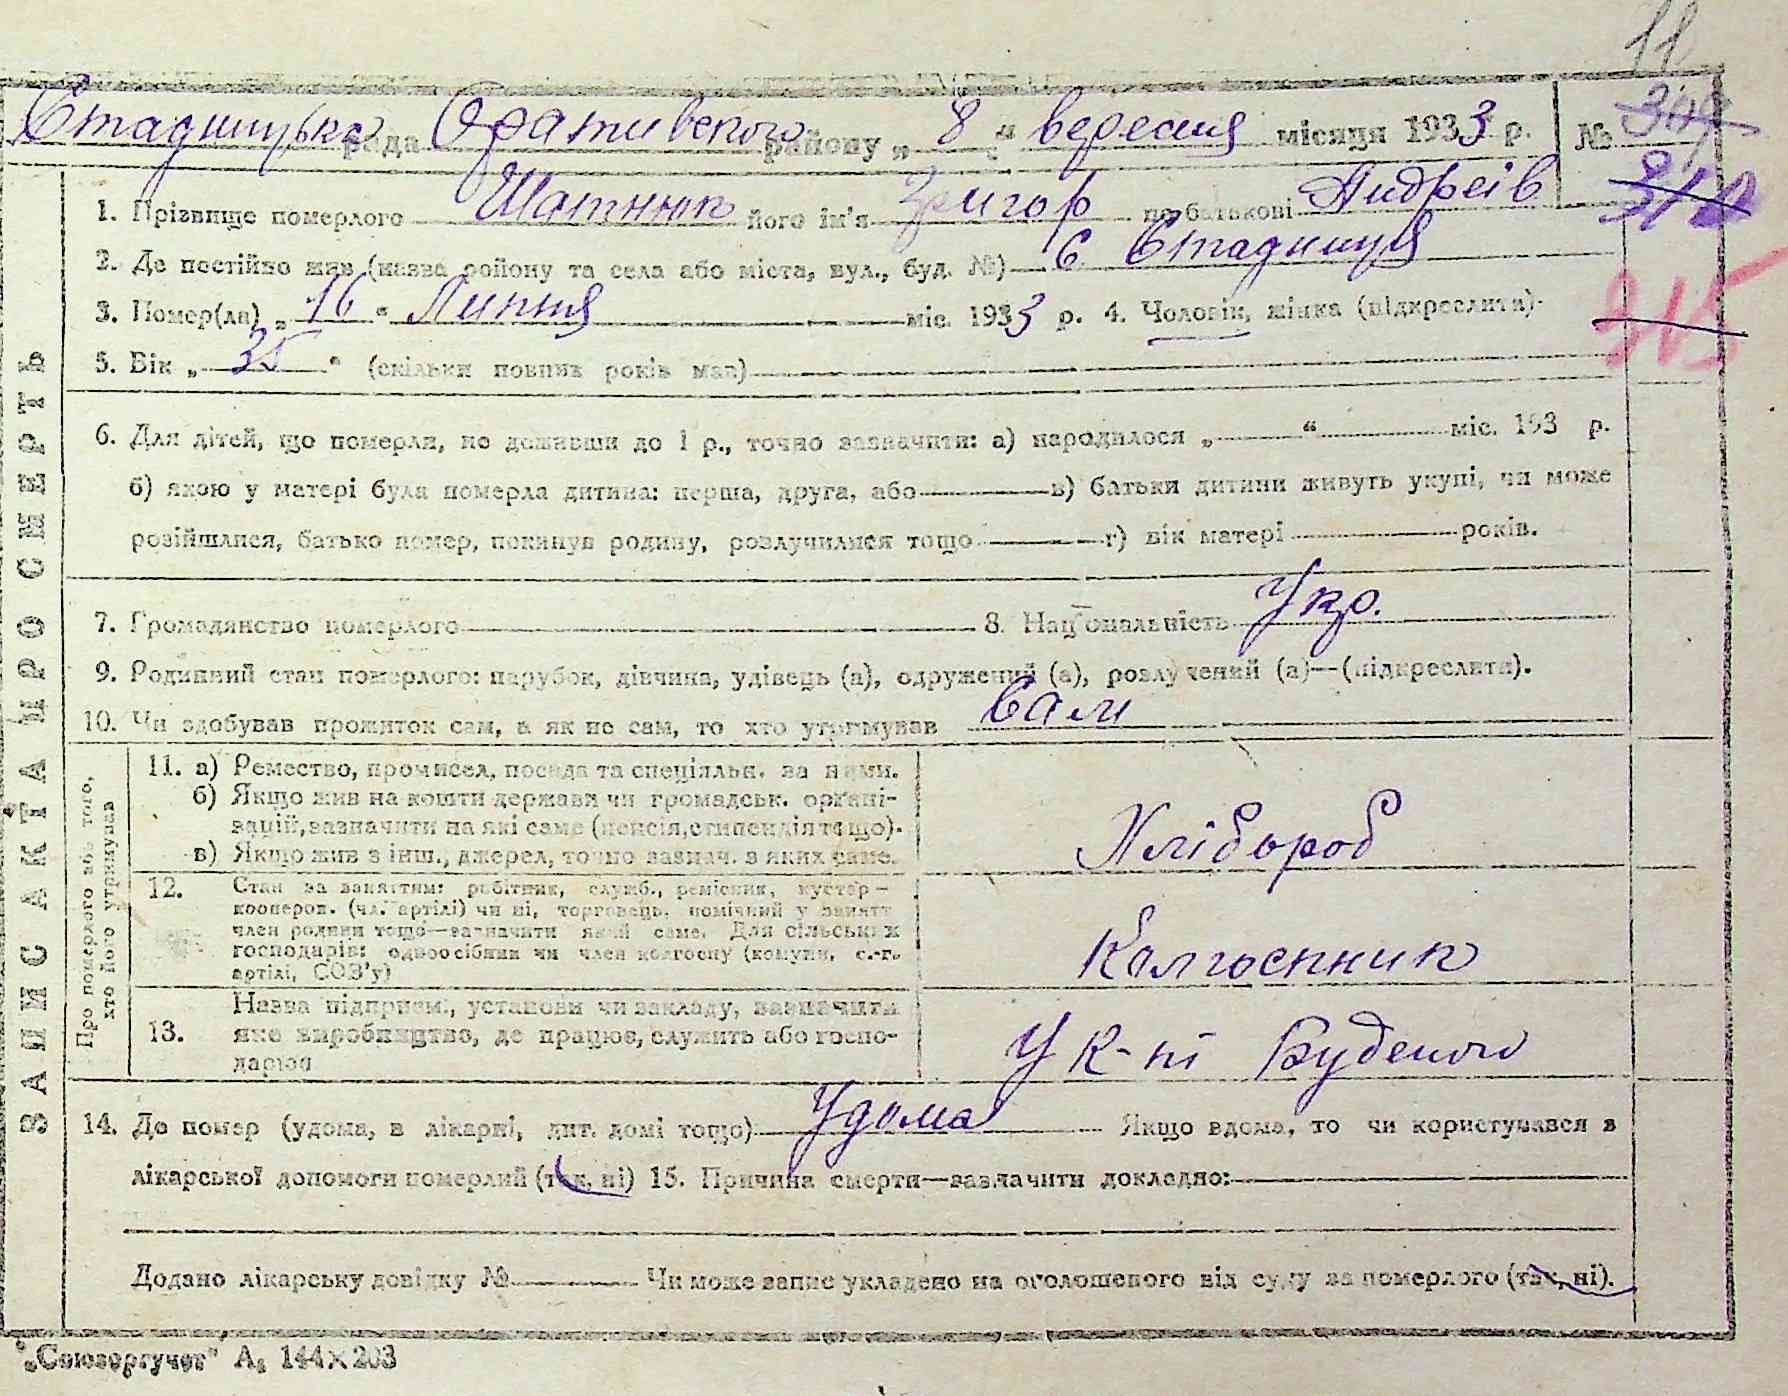 11
Стадницька рада Оратівского району „ 8 “ вересня місяця 1933 р. № 309
1. Прізвище померлого Шатнюк його ім'я Григор по батькові Андреїв 310
2. Де постійно жив (назва району та села або міста, вул., буд. №) С Стадниця
3. Помер(ла) „ 16 “ Липня міс. 1933 р. 4. Чоловік, жінка (підкреслити). 315
5. Вік „ 35 “ (скільки повних років мав)
6. Для дітей, що померли, не доживши до 1 р., точно зазначити: а) народилося „ “ міс. 193 р.
б) якою у матері була померла дитина: перша, друга, або в) батьки дитини живуть укупі, чи може
розійшлися, батько помер, покинув родину, розлучилися тощо г) вік матері років.
7. Громадянство померлого 8. Національність Укр.
9. Родинний стан померлого: парубок, дівчина, удівець (а), одружений (а), розлучений (а)—(підкреслити).
10. Чи здобував прожиток сам, а як не сам, то хто утримував Сам
ЗАПИС АКТА ПРО СМЕРТЬ
Про померлого або того, хто його утримував
11. а) Ремество, промисел, посада та спеціяльн. за ними.
б) Якщо жив на кошти держави чи громадськ. органі-
зацій, зазначити на які саме (пенсія, стипендія тощо).
в) Якщо жив з інш., джерел, точно зазнач. з яких саме.
Хлібороб
12. Стан за заняттям: робітник, служб., ремісник, кустар—
кооперов. (чл. артілі) чи ні, торговець, помічний у занятт
член родини тощо—зазначити який саме. Для сільських
господарів: одноосібник чи член колгоспу (комуни, с.-г.
артілі, СОЗ'у)
Колгоспник
13. Назва підприєм., установи чи закладу, зазначити
яке виробництво, де працює, служить або госпо-
дарює
У к-пі Будьоного
14. Де помер (удома, в лікарні, дит. домі тощо) Удома Якщо вдома, то чи користувався з
лікарської допомоги померлий (так, ні) 15. Причина смерти—зазначити докладно:
Додано лікарську довідку № Чи може запис укладено на оголошеного від суду за померлого (так, ні).
„Союзоргучет" А₅ 144×203